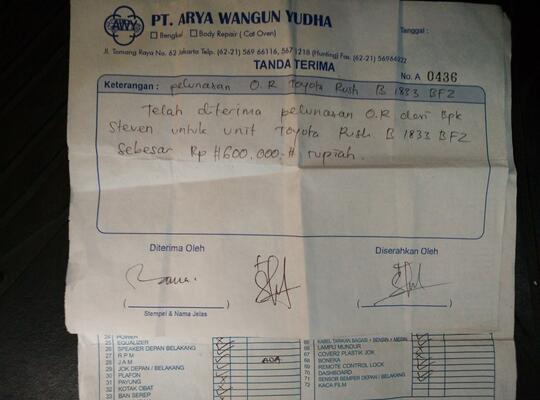 AWY
PT. ARYA WANGUN YUDHA
Bengkel Body Repair ( Cat Oven)
Tanggal :
Jl. Tomang Raya No. 62 Jakarta Telp. (62-21) 569 66116, 567 1218 (Hunting) Fax. (62-21) 56964222
TANDA TERIMA
No. A 0436
Keterangan : pelunasan O.R Toyota Rush B 1833 BFZ
Telah diterima pelunasan O.R dari Bpk
Steven untuk unit Toyota Rush B 1833 BFZ
sebesar Rp #600.000# rupiah.
Diterima Oleh
Diserahkan Oleh
( )
( )
Stempel & Nama Jelas
24 POWER
25 EQUALIZER
26 SPEAKER DEPAN / BELAKANG
27 R P M
28 J A M
ADA
29 JOK DEPAN / BELAKANG
30 PLAFON
31 PAYUNG
32 KOTAK OBAT
33 BAN SEREP
66 LAMPU MUNDUR
67 COVER2 PLASTIK JOK
68 BONEKA
69 REMOTE CONTROL LOCK
70 DASHBOARD
71 SENSOR BEMPER DEPAN / BELAKANG
72 KACA FILM